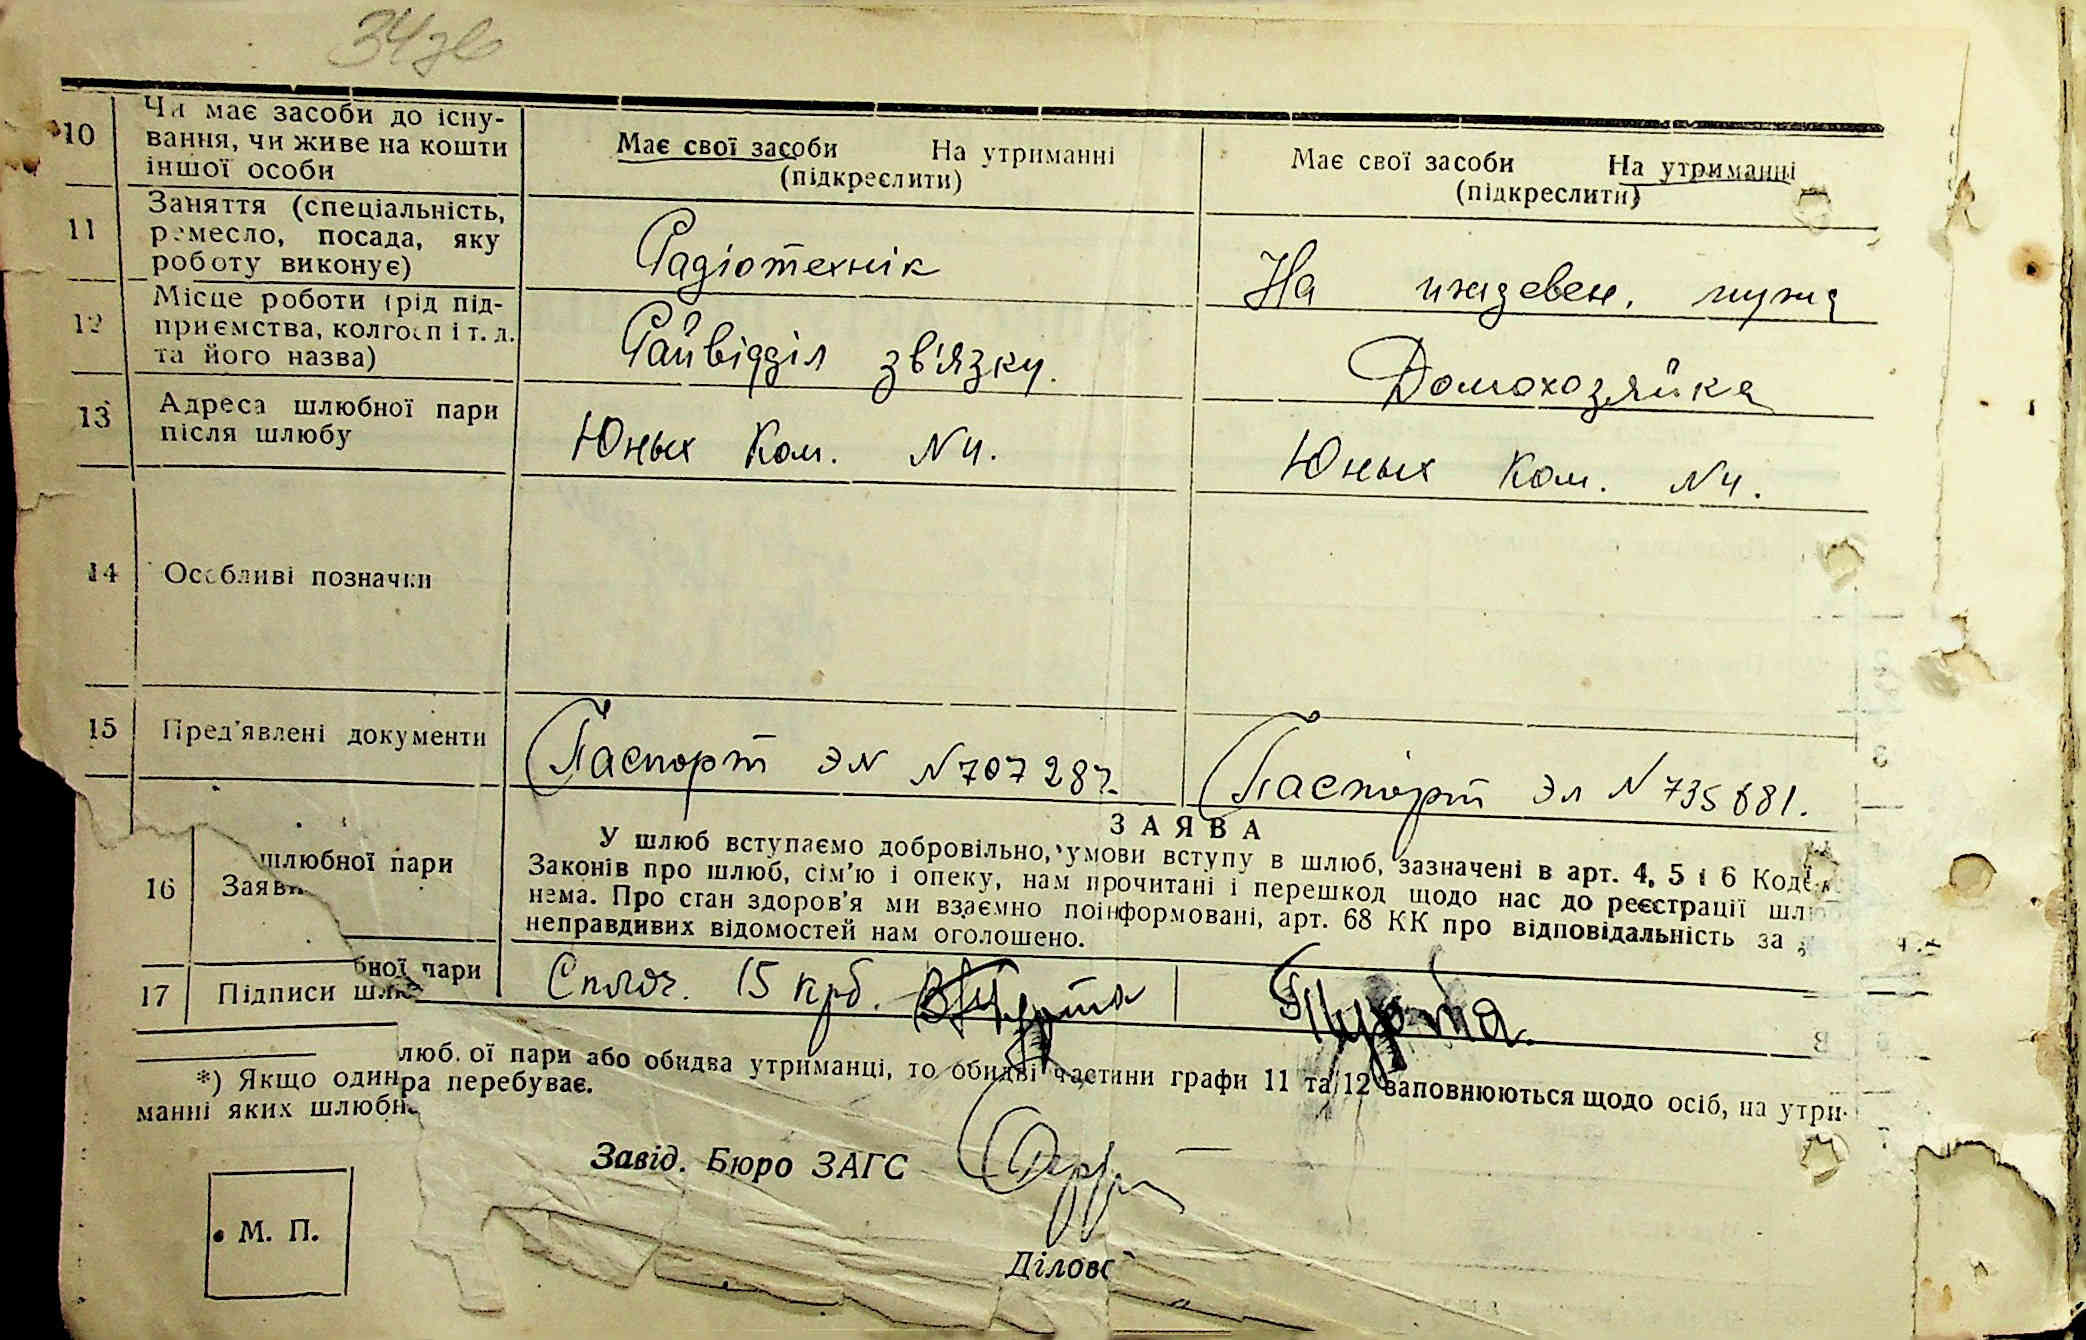 34зв
10 Чи має засоби до існу-
вання, чи живе на кошти
іншої особи
Має свої засоби На утриманні
(підкреслити)
Має свої засоби На утриманні
(підкреслити)
11 Заняття (спеціальність,
ремесло, посада, яку
роботу виконує)
Радіотехнік
На иждевен. мужа
12 Місце роботи (рід під-
приємства, колгосп і т. д.
та його назва)
Райвідділ зв'язку.
Домохозяйка
13 Адреса шлюбної пари
після шлюбу
Юных Ком. N4.
Юных Ком. N4.
14 Особливі позначки
15 Пред'явлені документи
Паспорт ЭЛ N 707287.
Паспорт Эл N 735681.
16 Заяви шлюбної пари
ЗАЯВА
У шлюб вступаємо добровільно, умови вступу в шлюб, зазначені в арт. 4, 5 і 6 Коде
Законів про шлюб, сім'ю і опеку, нам прочитані і перешкод щодо нас до реєстрації шлюб
нема. Про стан здоров'я ми взаємно поінформовані, арт. 68 КК про відповідальність за
неправдивих відомостей нам оголошено.
17 Підписи шлюбної пари
Сплач. 15 крб.
Пурта.
*) Якщо один люб. ої пари або обидва утриманці, то обидві частини графи 11 та 12 заповнюються щодо осіб, на утри-
манні яких шлюбна ра перебуває.
Завід. Бюро ЗАГС
Діловод
М. П.